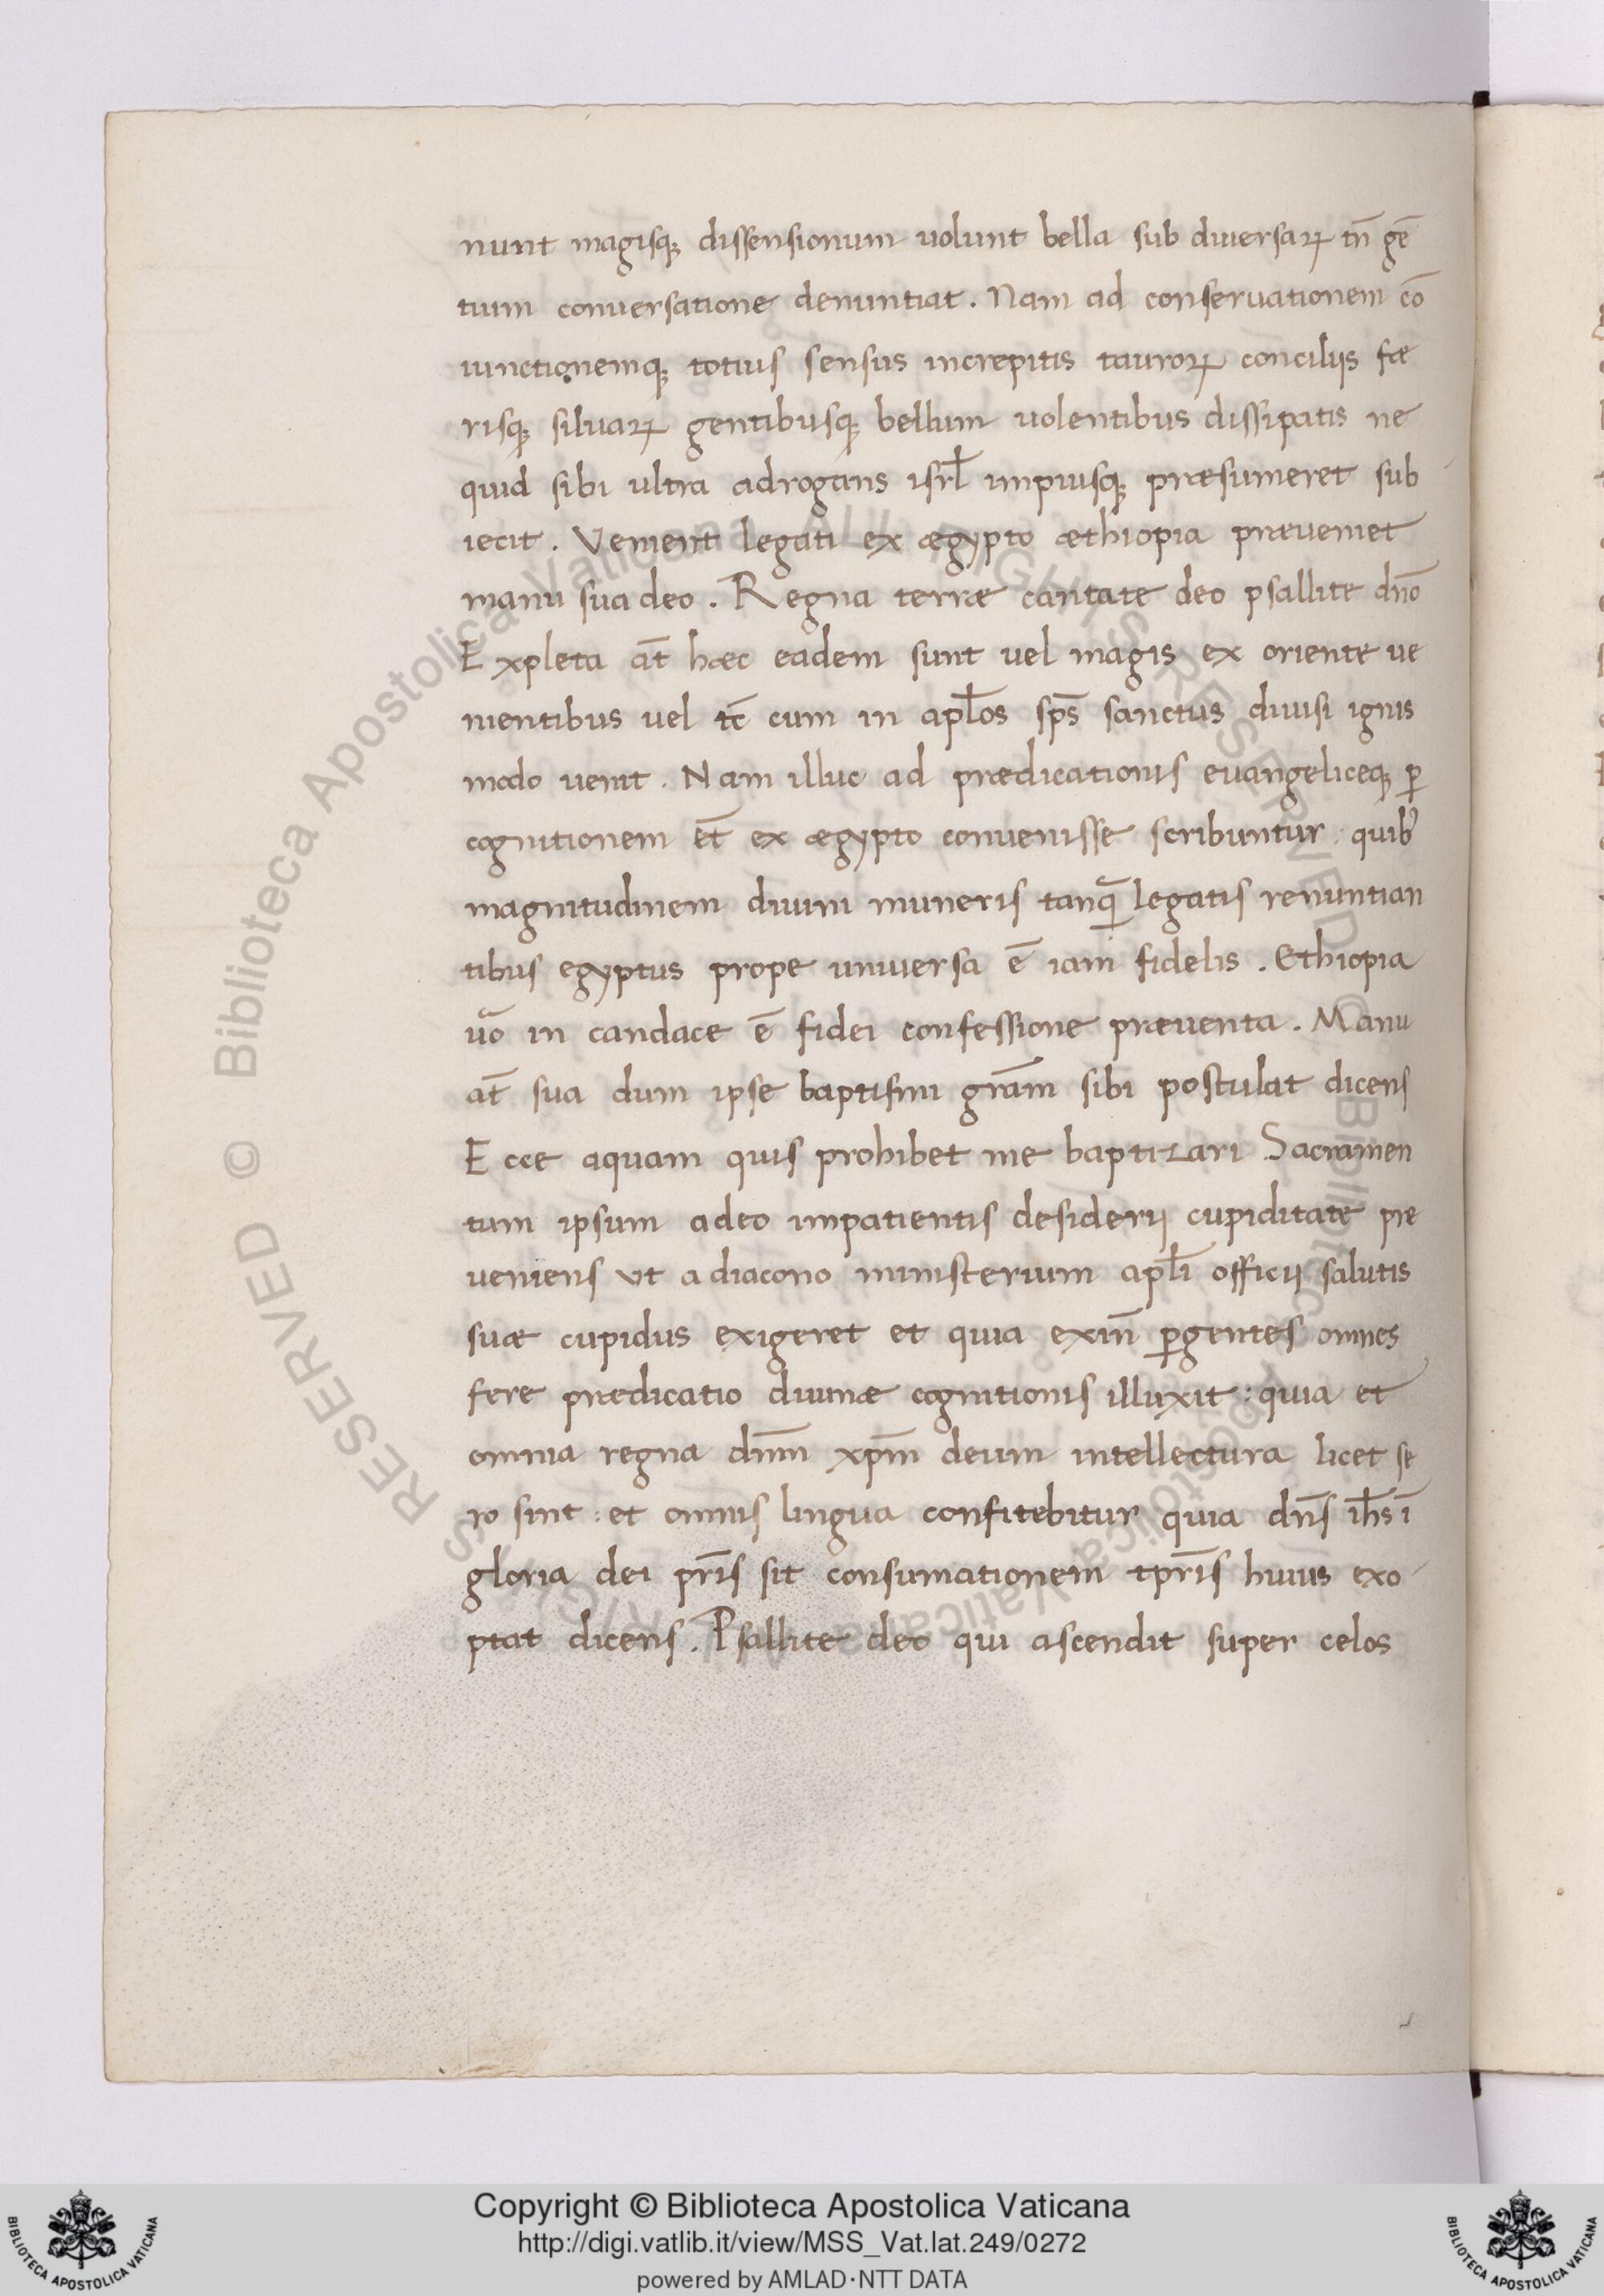 nunt magisq; dissensionum uolunt bella sub diuersaꝝ tn̄ gē
tium conuersatione denuntiat. Nam ad conseruationem cō
iunctionemq; totius sensus increpitis tauroꝝ conciliis fæ
risq; siluaꝝ gentibusq; bellum uolentibus dissipatis ne
quid sibi ultra adrogans isrl̄ impiusq; præsumeret sub
iecit. Venient legati ex ægypto æthiopia præueniet
manu sua deo. Regna terræ cantate deo psallite dn̄o
Expleta aт̄ hæc eadem sunt uel magis ex oriente ue
nientibus uel tc̄ cum in apl̄os sp̄s sanctus diuisi ignis
modo uenit. Nam illuc ad prædicationis euangeliceq; ꝑ
cognitionem et̄ ex ægypto conuenisse scribuntur: quib᾽
magnitudinem diuini muneris tanq̄ legatis renuntian
tibus egyptus prope uniuersa ē iam fidelis. Ethiopia
uo᷃ in candace ē fidei confessione præuenta. Manu
at̄ sua dum ipse baptismi gr̄am sibi postulat dicens
Ecce aquam quis prohibet me baptizari Sacramen
tum ipsum adeo impatientis desiderij cupiditate pre
ueniens ut a diacono ministerium apl̄i officij salutis
suæ cupidus exigeret et quia exin̄ ꝑgentes omnes
fere prædicatio diuinæ cognitionis illuxit: quia et
omnia regna dn̄m xp̄m deum intellectura licet se
ro sint: et omnis lingua confitebitur quia dn̄s ih̄s ī
gloria dei pr̄is sit consumationem tpr̄is huius exo
ptat dicens. Psallite deo qui ascendit super celos
© Biblioteca Apostolica Vaticana ALL RIGHTS RESERVED
© Biblioteca Apostolica Vaticana ALL RIGHTS RESERVED
Copyright © Biblioteca Apostolica Vaticana
http://digi.vatlib.it/view/MSS_Vat.lat.249/0272
powered by AMLAD·NTT DATA
BIBLIOTECA APOSTOLICA VATICANA
BIBLIOTECA APOSTOLICA VATICANA